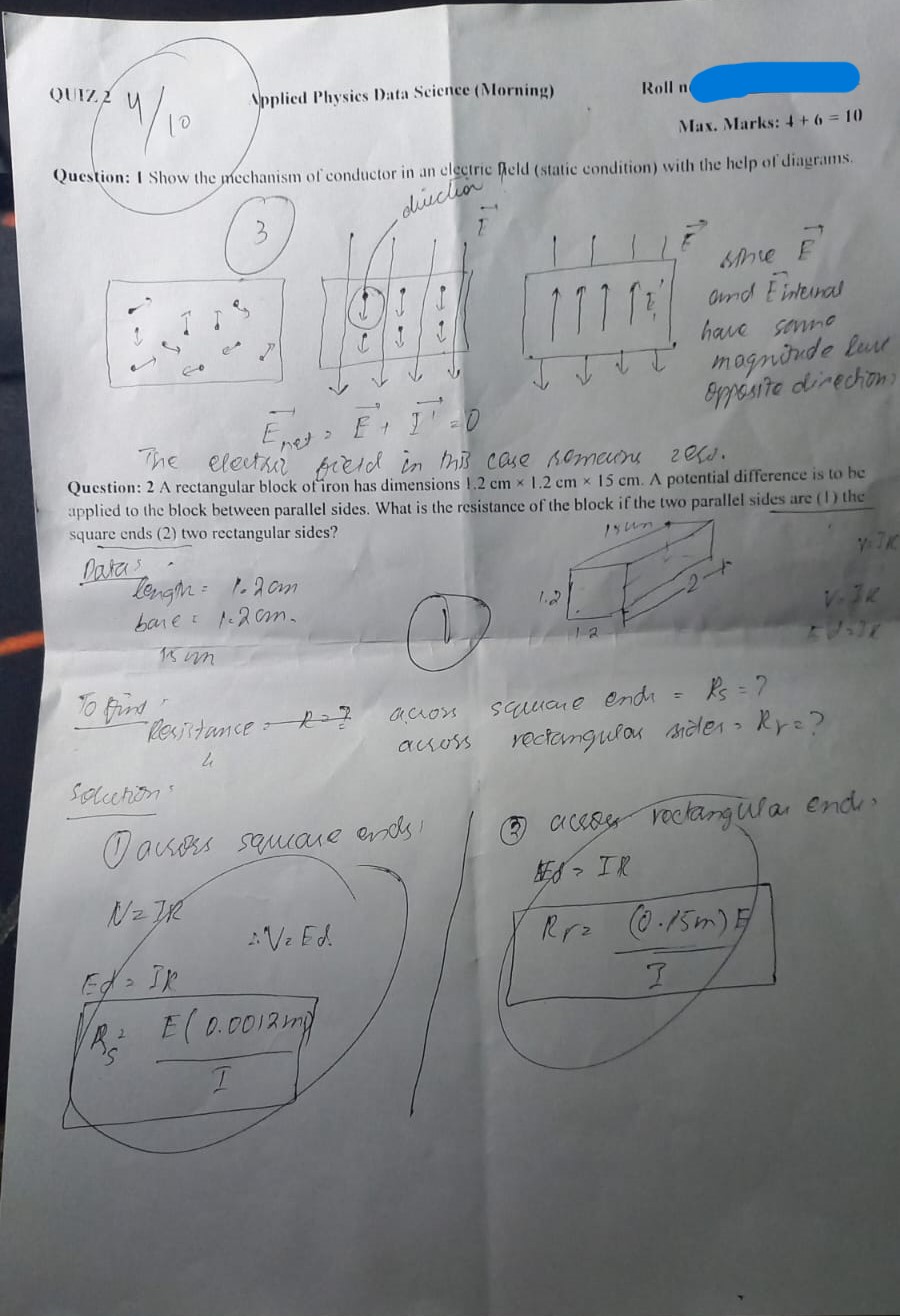 QUIZ 2
4/10
Applied Physics Data Science (Morning)
Roll n
Max. Marks: 4 + 6 = 10
Question: 1 Show the mechanism of conductor in an electric field (static condition) with the help of diagrams.
3
direction
E
E
E'
since E
and E internal
have same
magnitude
opposite direction.
E net = E + E' = 0
The electric field in this case remains zero.
Question: 2 A rectangular block of iron has dimensions 1.2 cm × 1.2 cm × 15 cm. A potential difference is to be
applied to the block between parallel sides. What is the resistance of the block if the two parallel sides are (1) the
square ends (2) two rectangular sides?
15 cm
1.2
1.2
2
V=IR
V=IR
Ed=IR
Data:
length = 1.2 cm
base = 1.2 cm.
15 cm
1
To find:
Resistance = R=?
across square ends = Rs = ?
across rectangular sides = Rr = ?
Solution:
① across square ends:
V = IR
∴ V = Ed
Ed = IR
Rs = E(0.0012m)
I
② across rectangular ends:
Ed = IR
Rr = (0.15m) E
I